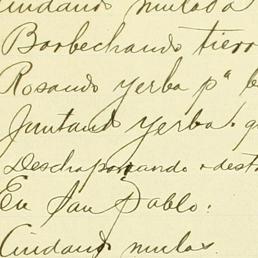 Cuidando mulada
Barbechando tierr
Rosando yerba pª le
Juntando yerba. q
Deschaponando + dest
En San Pablo:
Cuidando mulas